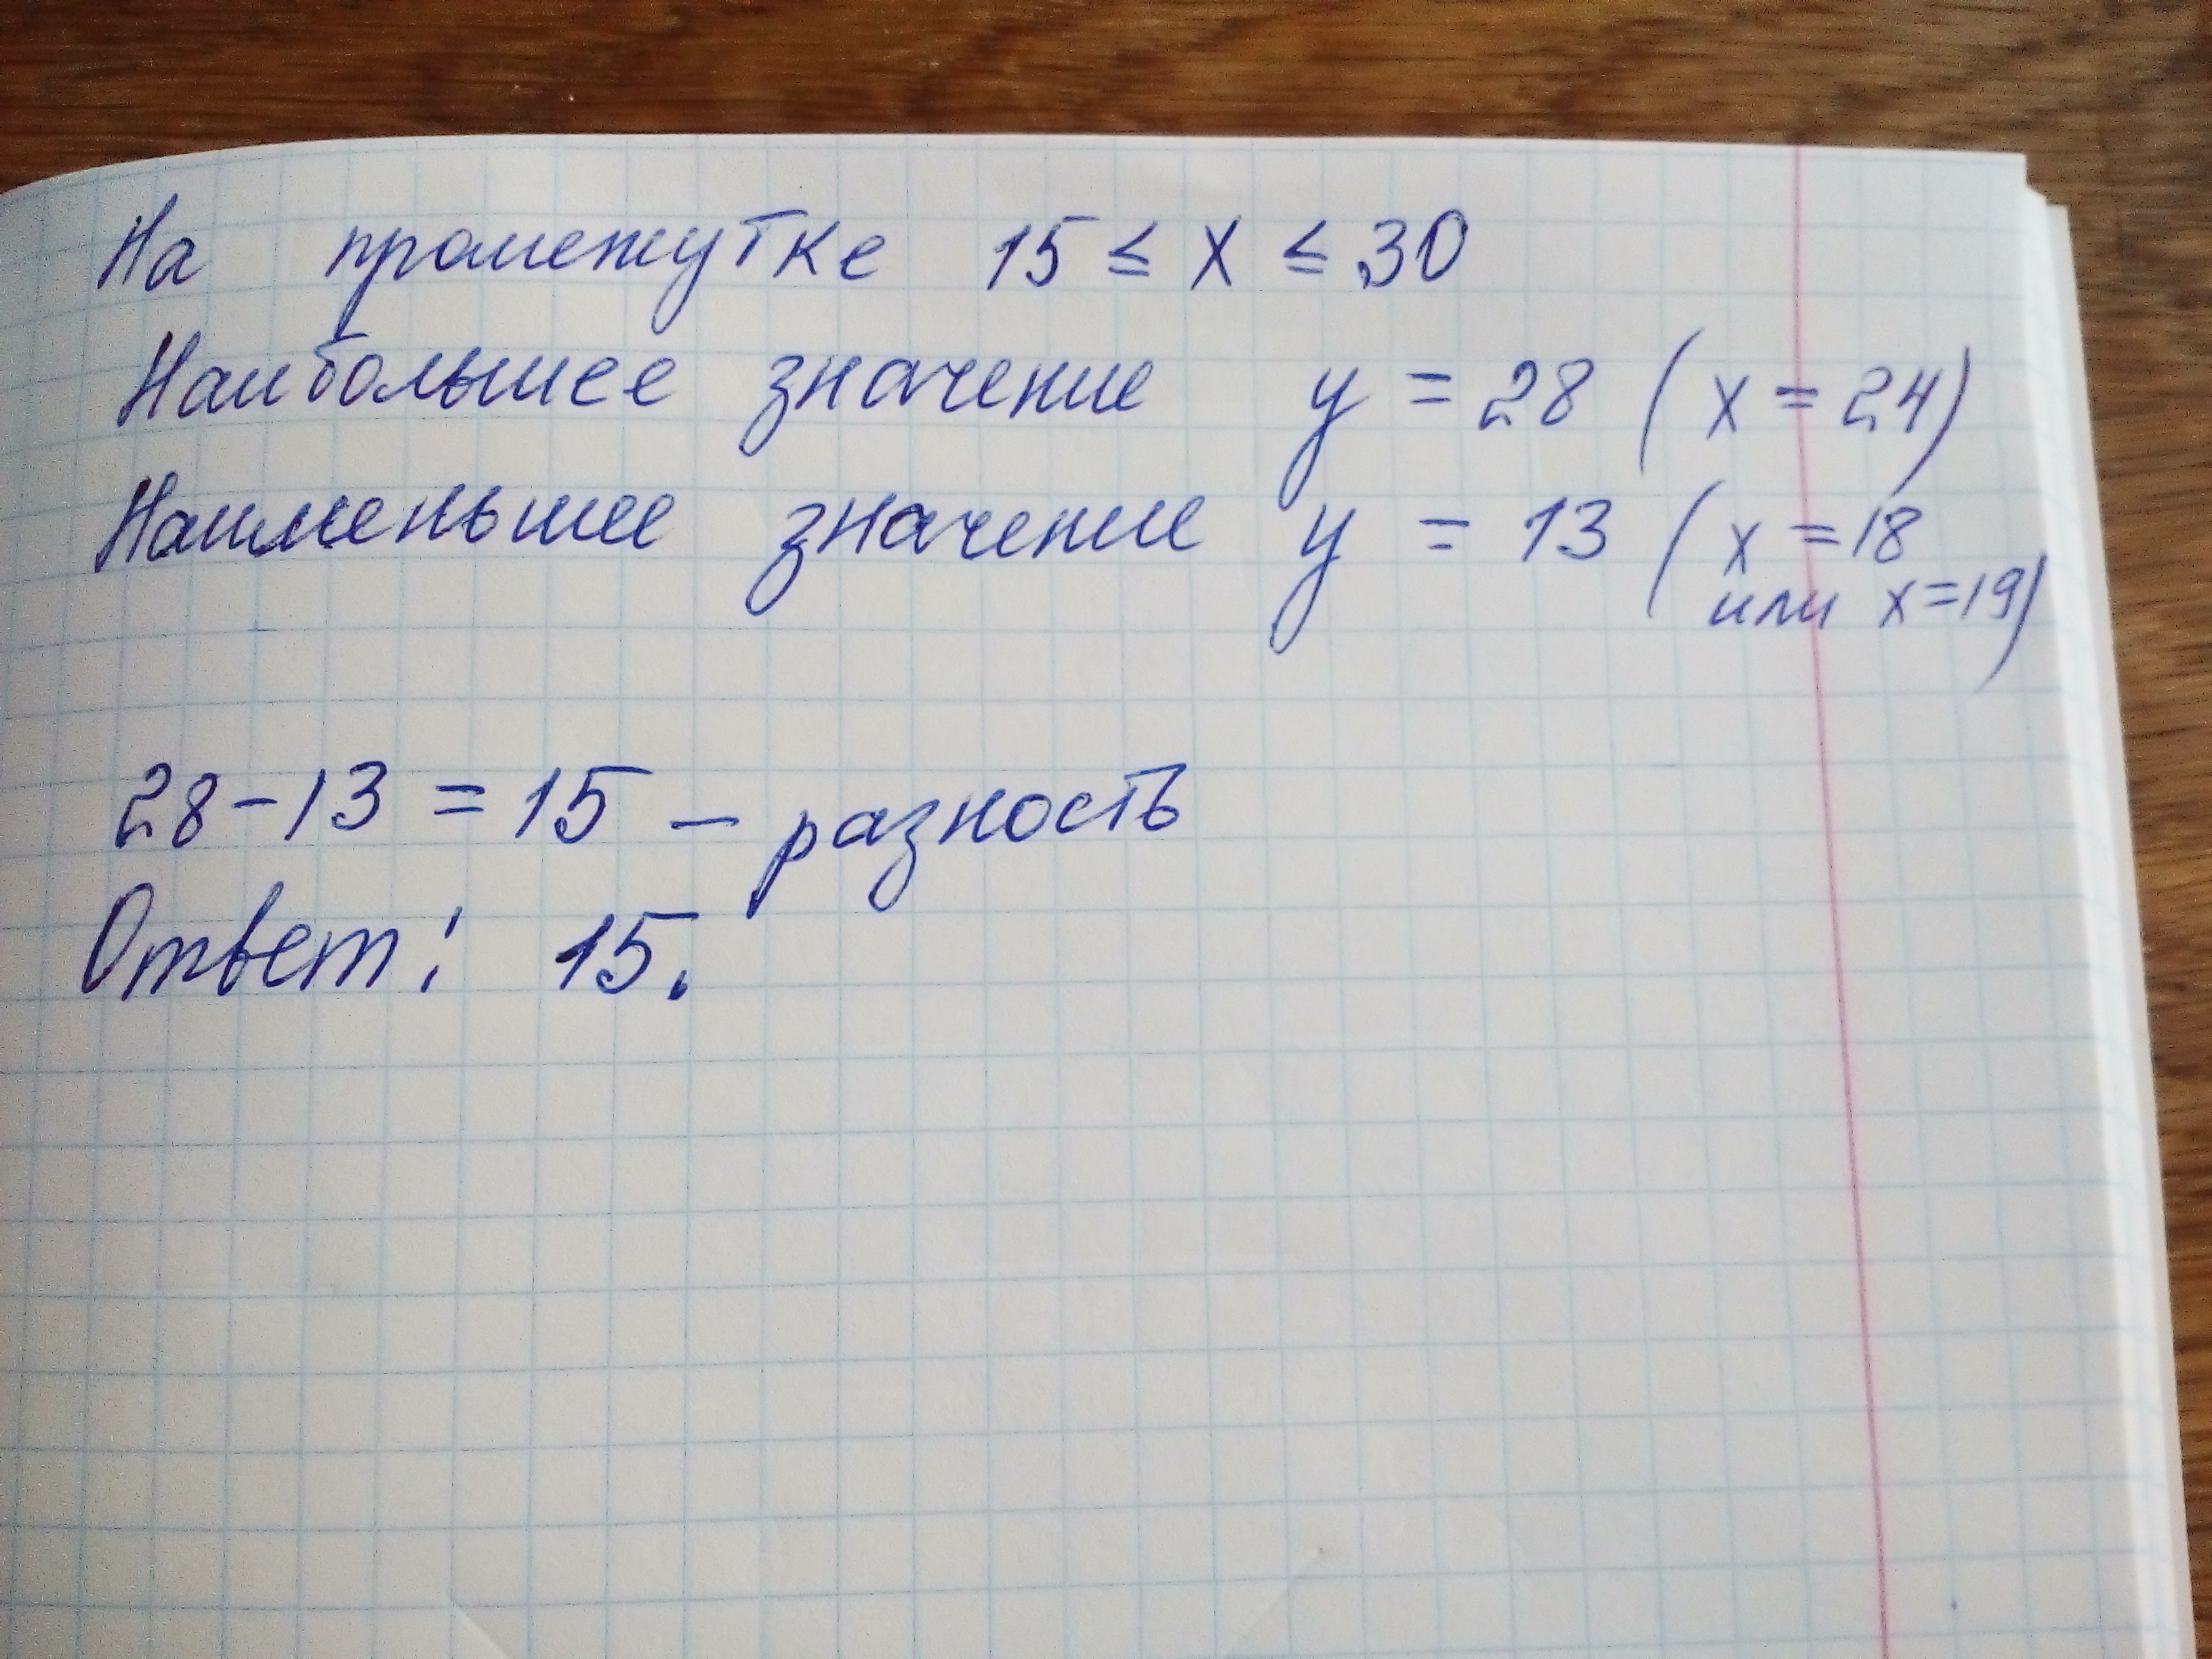 На промежутке 15 ≤ x ≤ 30
Наибольшее значение y = 28 (x = 24)
Наименьшее значение y = 13 (x = 18
или x = 19)
28 - 13 = 15 - разность
Ответ: 15.